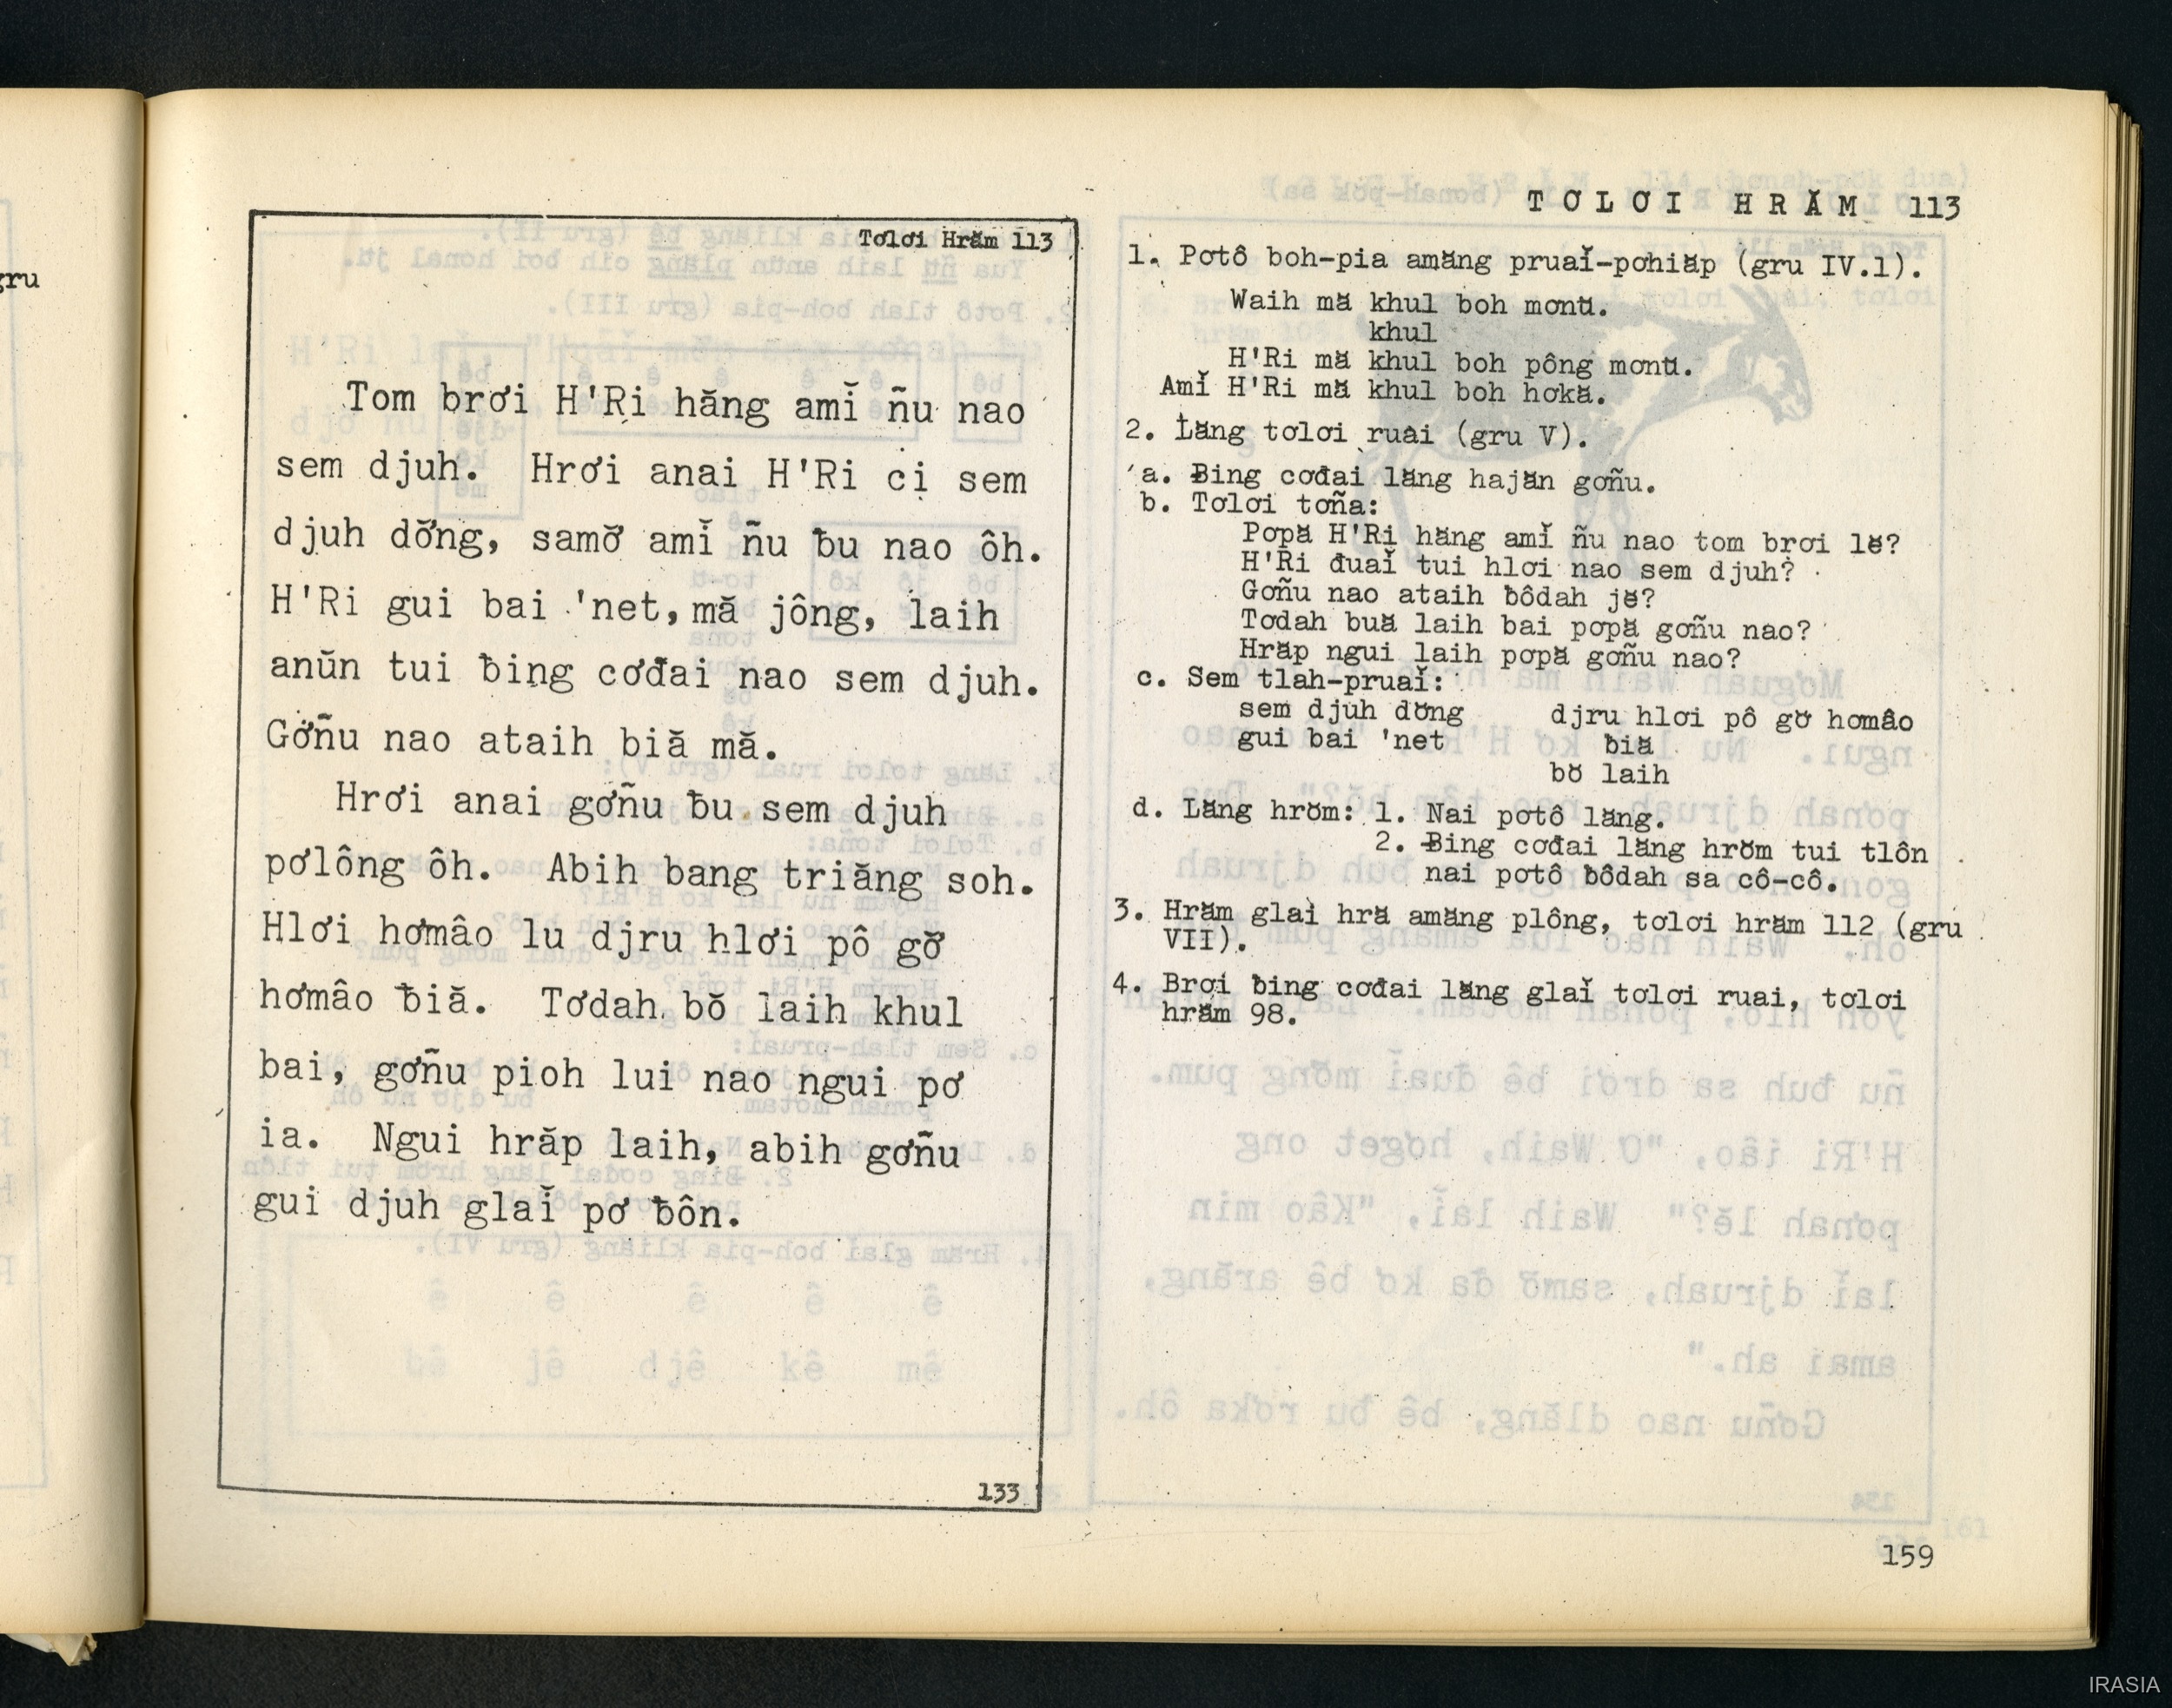 gru
Tơlơi Hrăm 113
Tom brơi H'Ri hăng amĭ ñu nao
sem djuh. Hrơi anai H'Ri ci sem
djuh dơ̆ng, samơ̆ amĭ ñu ƀu nao ôh.
H'Ri gui bai 'net, mă jông, laih
anŭn tui ƀing cơđai nao sem djuh.
Gơ̆ñu nao ataih biă mă.
Hrơi anai gơñu ƀu sem djuh
pơlông ôh. Abih bang triăng soh.
Hlơi hơmâo lu djru hlơi pô gơ̆
hơmâo ƀiă. Tơdah bŏ laih khul
bai, gơñu pioh lui nao ngui pơ
ia. Ngui hrăp laih, abih gơñu
gui djuh glaĭ pơ ƀôn.
133
TƠLƠI HRĂM 113
1. Pơtô boh-pia amăng pruaĭ-pơhiăp (gru IV.1).
Waih mă khul boh mơnŭ.
khul
H'Ri mă khul boh pông mơnŭ.
Amĭ H'Ri mă khul boh hơkă.
2. Lăng tơlơi ruai (gru V).
a. Ƀing cơđai lăng hajăn gơñu.
b. Tơlơi tơña:
Pơpă H'Ri hăng amĭ ñu nao tom brơi lĕ?
H'Ri đuaĭ tui hlơi nao sem djuh?
Gơñu nao ataih ƀôdah jĕ?
Tơdah buă laih bai pơpă gơñu nao?
Hrăp ngui laih pơpă gơñu nao?
c. Sem tlah-pruaĭ:
sem djuh dơ̆ng djru hlơi pô gơ̆ hơmâo
gui bai 'net ƀiă
bŏ laih
d. Lăng hrŏm: 1. Nai pơtô lăng.
2. Ƀing cơđai lăng hrŏm tui tlôn
nai pơtô ƀôdah sa cô-cô.
3. Hrăm glaĭ hră amăng plông, tơlơi hrăm 112 (gru
VII).
4. Brơi ƀing cơđai lăng glaĭ tơlơi ruai, tơlơi
hrăm 98.
159
IRASIA